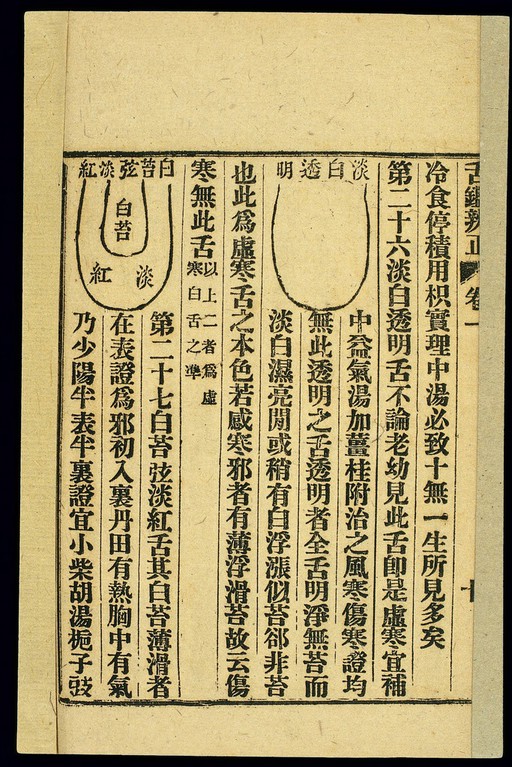 舌鑑辨正 卷一
冷食停積用枳實理中湯必致十無一生所見多矣
第二十六淡白透明舌不論老幼見此舌卽是虛寒宜補
中益氣湯加薑桂附治之風寒傷寒證均
無此透明之舌透明者全舌明淨無苔而
淡白透明
淡白濕亮間或稍有白浮漲似苔卻非苔
也此爲虛寒舌之本色若感寒邪者有薄浮滑苔故云傷
寒無此舌以上二者爲虛
寒白舌之準
第二十七白苔弦淡紅舌其白苔薄滑者
白苔弦淡紅
白苔
淡
紅
在表證爲邪初入裏丹田有熱胸中有氣
乃少陽半表半裏證宜小柴胡湯梔子豉